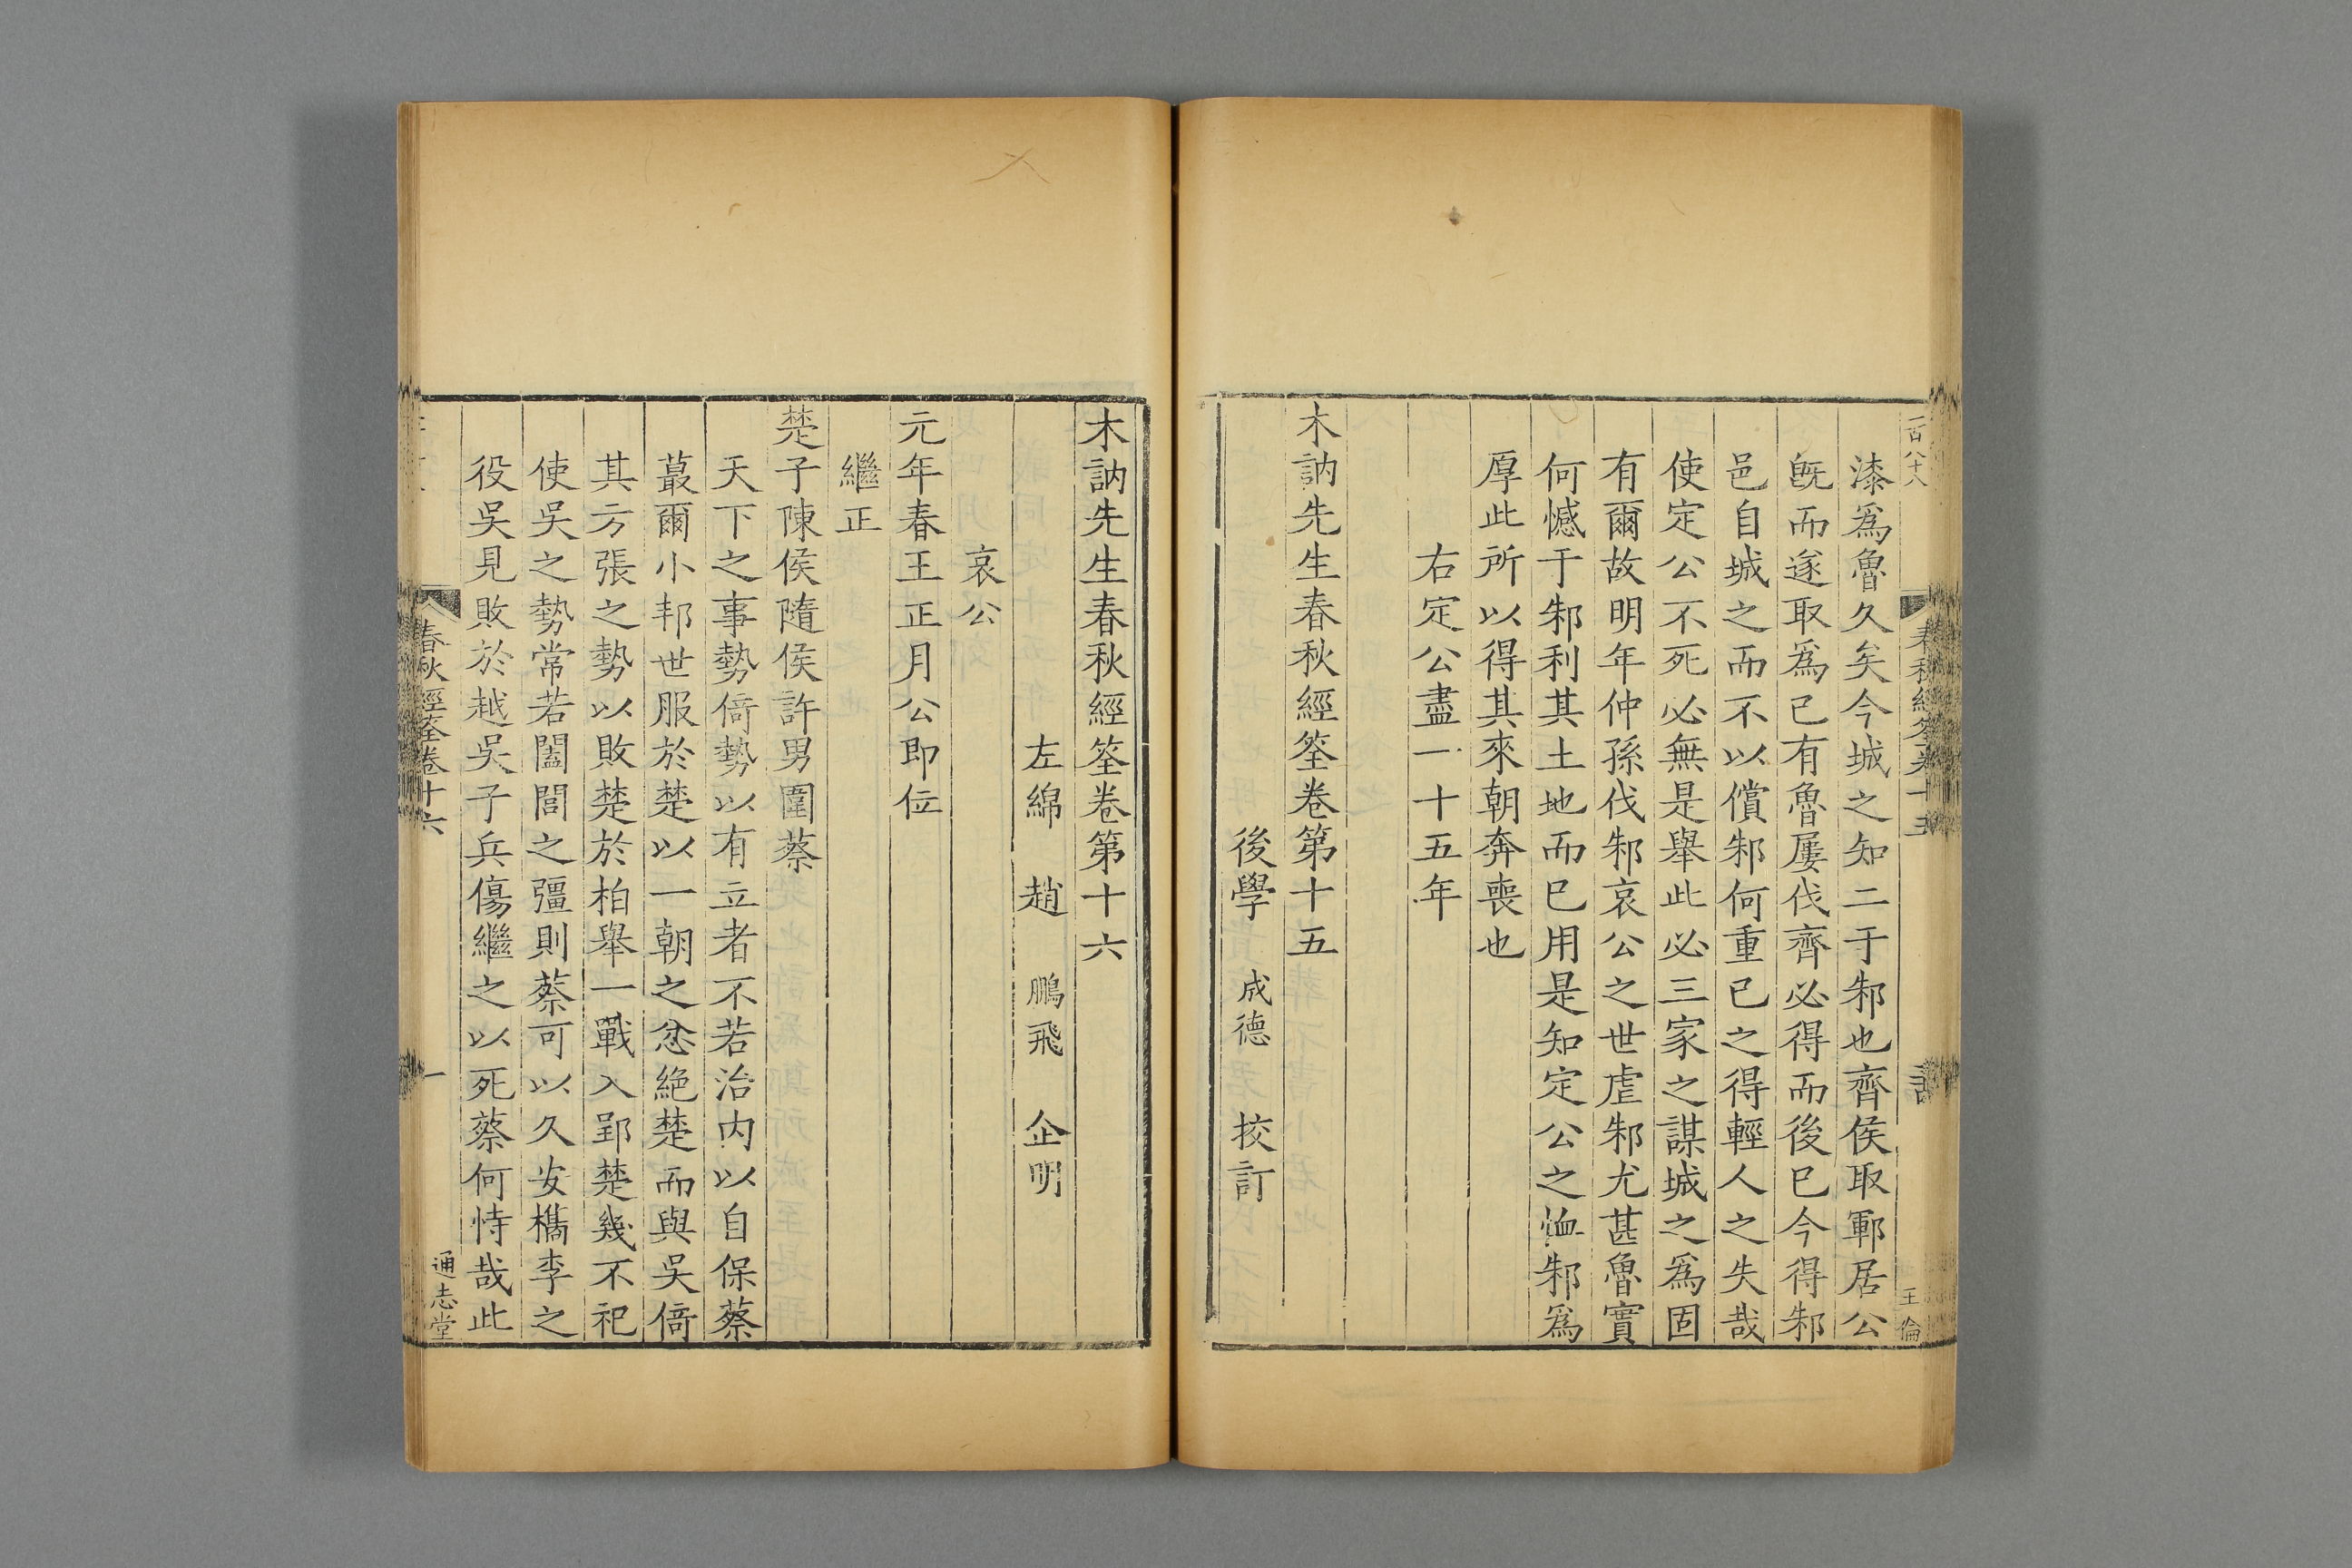 一百八十八
漆爲魯久矣今城之知二于邾也齊侯取鄆居公
旣而遂取爲已有魯屢伐齊必得而後已今得邾
邑自城之而不以償邾何重已之得輕人之失哉
使定公不死必無是舉此必三家之謀城之爲固
有爾故明年仲孫伐邾哀公之世虐邾尤甚魯實
何憾于邾利其土地而已用是知定公之恤邾爲
厚此所以得其來朝奔喪也
右定公盡一十五年
木訥先生春秋經筌卷第十五
後學 成德 挍訂
王倫
木訥先生春秋經筌卷第十六
左綿 趙 鵬飛 企明
哀公
元年春王正月公即位
繼正
楚子陳侯隨侯許男圍蔡
天下之事勢倚勢以有立者不若治内以自保蔡
蕞爾小邦世服於楚以一朝之忿絶楚而與吳倚
其方張之勢以敗楚於柏舉一戰入郢楚幾不祀
使吳之勢常若闔閭之彊則蔡可以久安檇李之
役吳見敗於越吳子兵傷繼之以死蔡何恃哉此
春秋經筌卷十六
一
通志堂